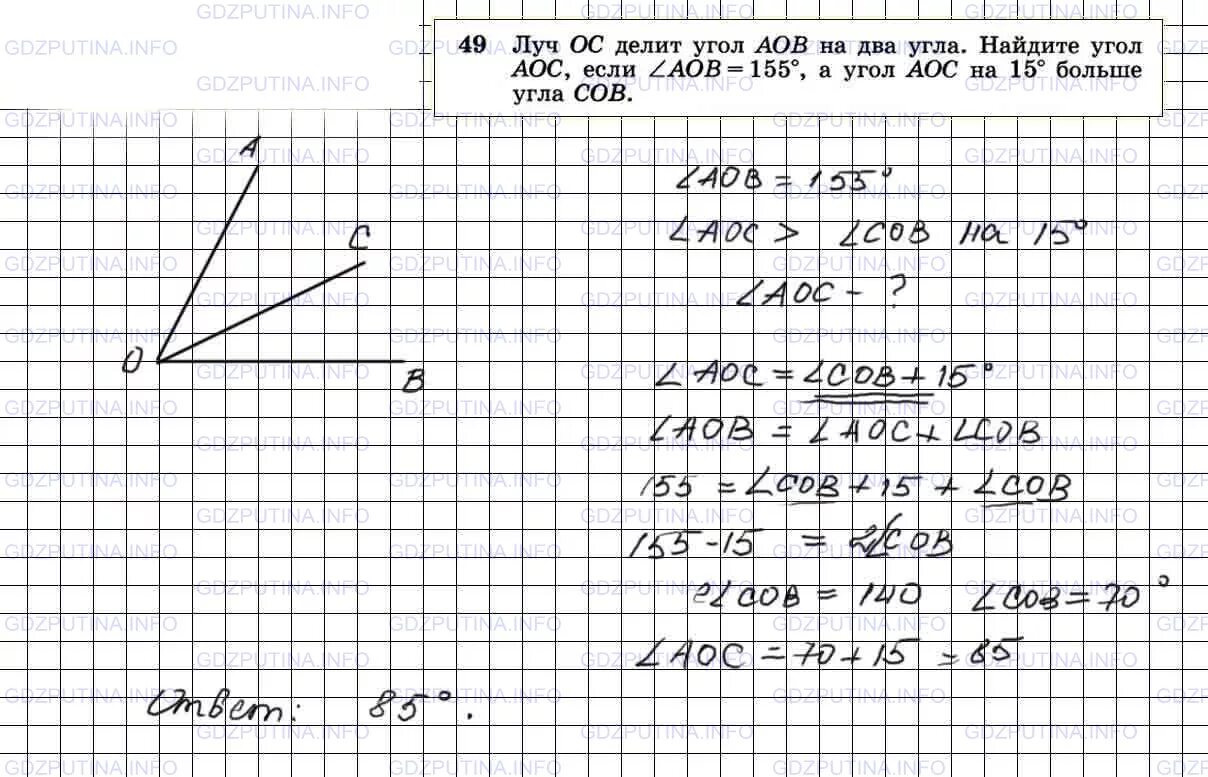 49 Луч OC делит угол AOB на два угла. Найдите угол
AOC, если ∠AOB = 155°, а угол AOC на 15° больше
угла COB.
A
C
O
B
∠AOB = 155°
∠AOC > ∠COB на 15°
∠AOC - ?
∠AOC = ∠COB + 15°
∠AOB = ∠AOC + ∠COB
155 = ∠COB + 15 + ∠COB
155 - 15 = 2∠COB
2∠COB = 140 ∠COB = 70°
∠AOC = 70 + 15 = 85
Ответ: 85°.
GDZPUTINA.INFO